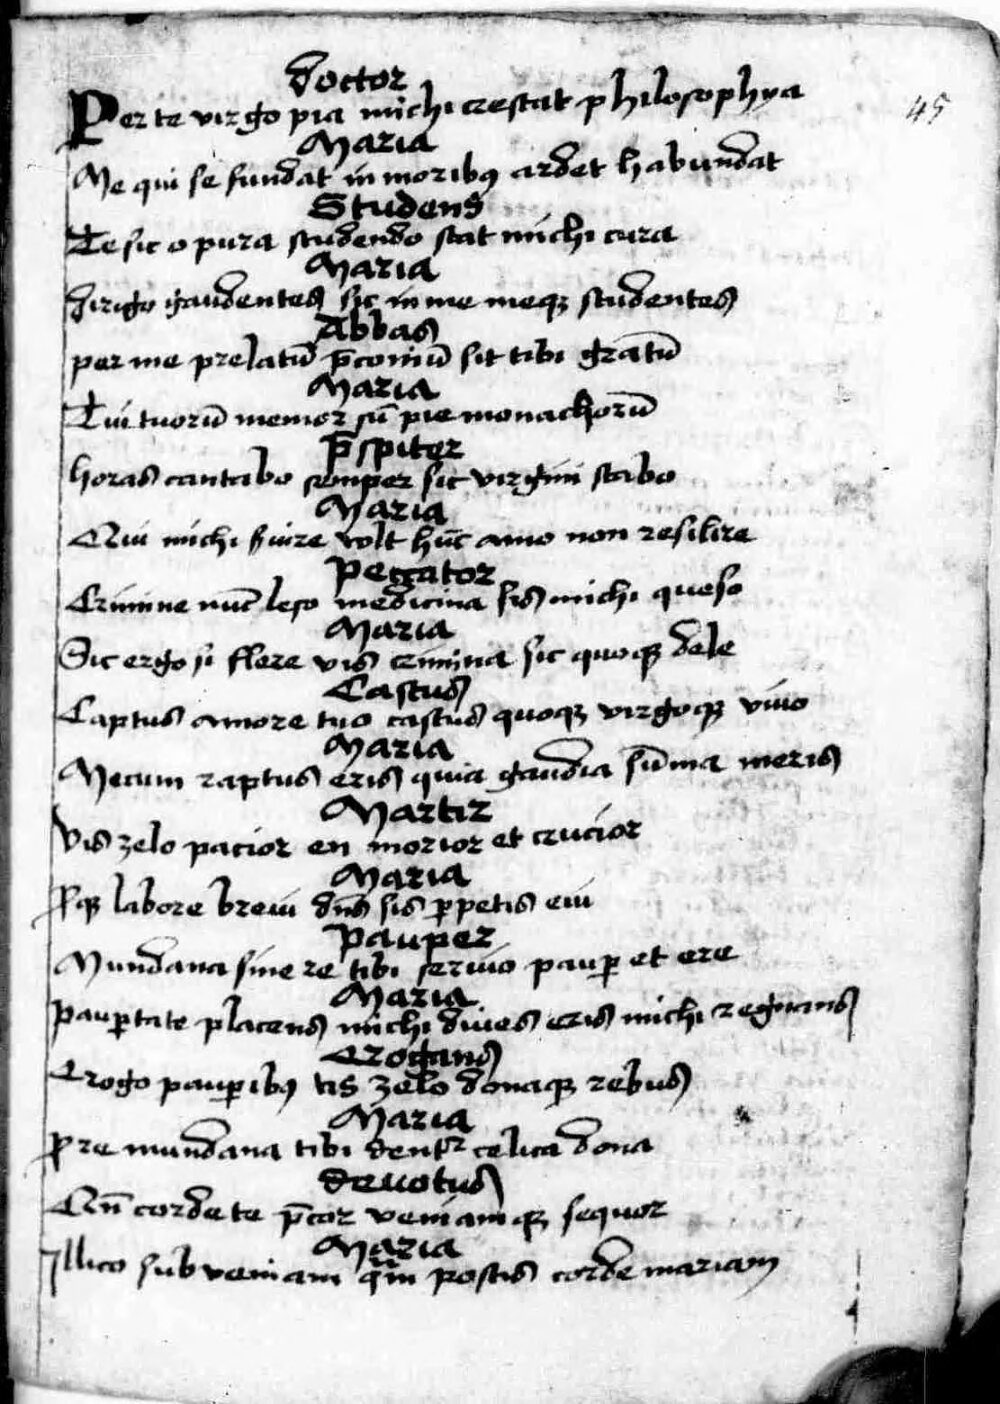 doctor
Per te virgo pia michi crestat philosophya
45
Maria
Me qui se fundat in moribꝰ ardet habundat
Studens
Te sic o pura studendo stat michi cura
Maria
dirigo gaudentes sic in me meqꝫ studentes
Abbas
per me prelatū p̄coniū sit tibi gratū
Maria
Tui tuorū memor sū pie monachorū
p̄spiter
horas cantabo semper sic virgini stabo
Maria
Qui michi fuire volt hūc amo non resilire
Peccator
Crimine nūc leso medicina sis michi queso
Maria
Sic ergo si flere vis crimina sic quoqꝫ dele
Castus
Captus amore tuo castus quoqꝫ virgoqꝫ viuo
Maria
Mecum raptus eris quia gaudia sūma meris
Martir
Vis zelo pacior en morior et crucior
Maria
ꝓqꝫ labore breui dn̄s sis ꝑpetis eui
Pauper
Mundana sine re tibi seruio pauꝑ et ere
Maria
pauꝑtate placens michi diues eris michi regnans
Erogans
Erogo pauꝑibꝰ tis zelo donaqꝫ rebus
Maria
ꝓ re mundana tibi dentr celica dona
deuotus
Cū corde te p̄cor veniamqꝫ sequor
Maria
Illico subveniam postis corde mariam